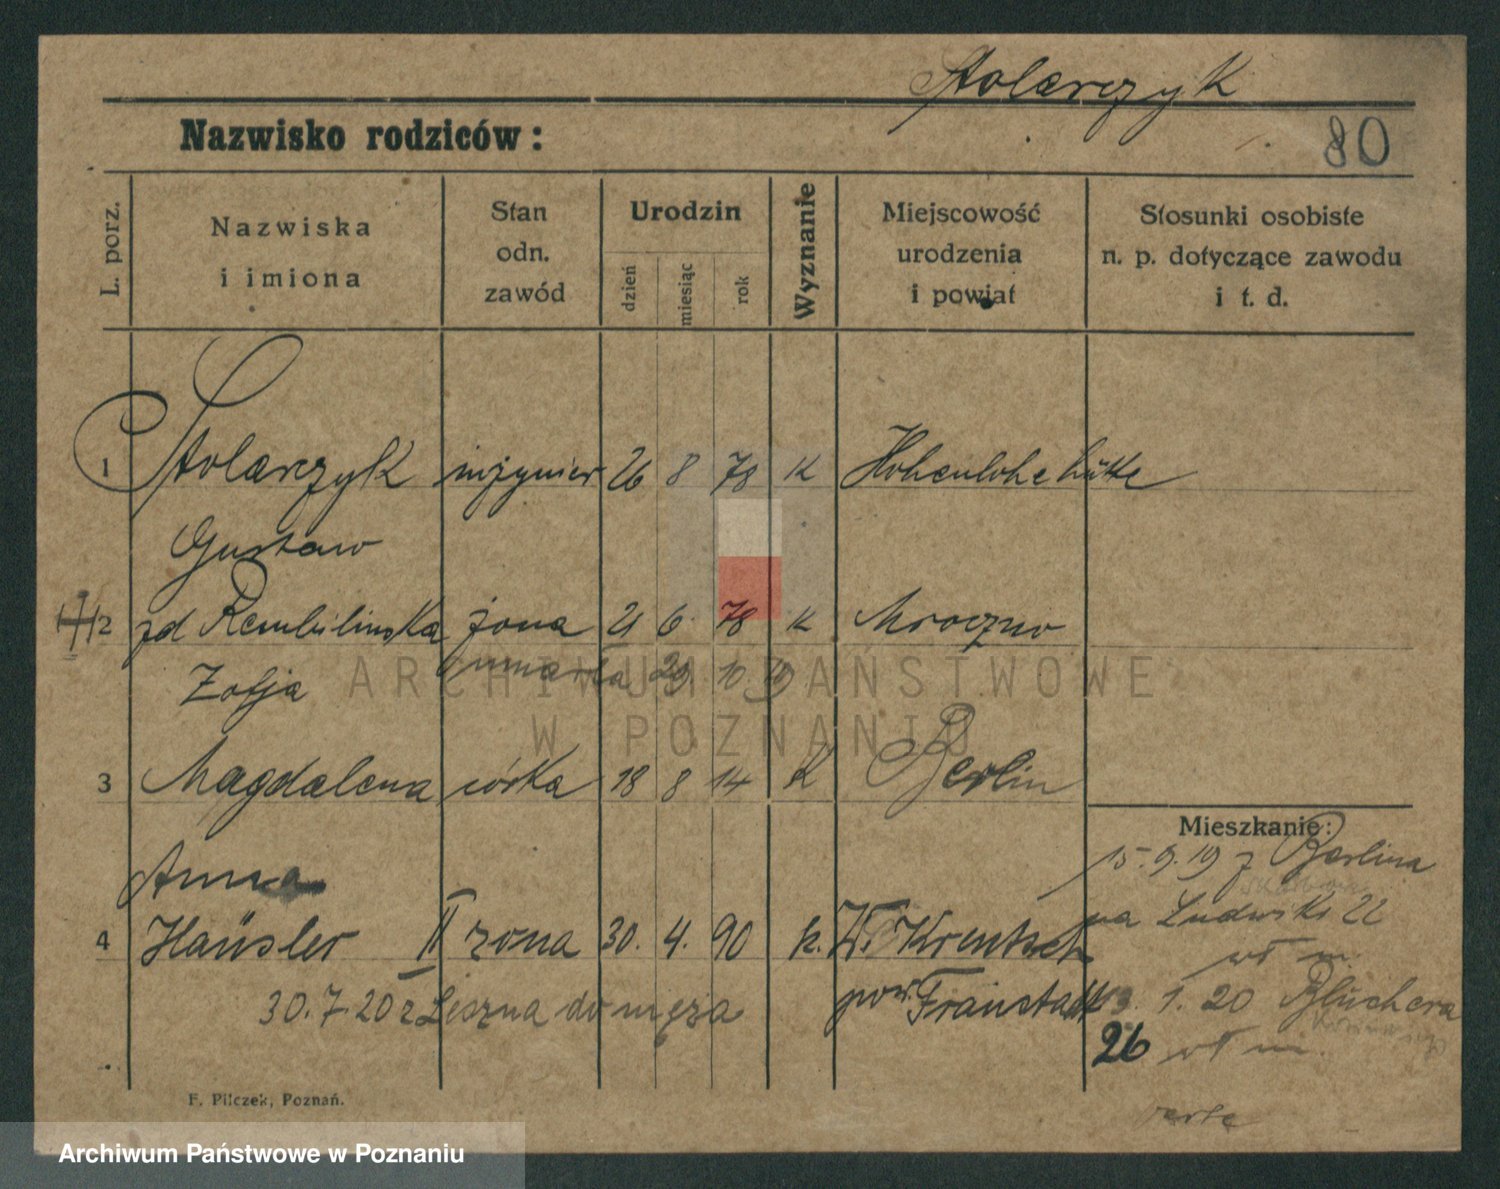 Stolarczyk
Nazwisko rodziców:
80
L. porz.
Nazwiska
i imiona
Stan
odn.
zawód
Urodzin
dzień
miesiąc
rok
Wyznanie
Miejscowość
urodzenia
i powiat
Stosunki osobiste
n. p. dotyczące zawodu
i t. d.
1 Stolarczyk inżynier 26 8 78 K Hohenlohehütte
Gustaw
2 zd Rembilinska żona 21 6 78 K Mroczno
Zofja umarła 29. 10. 19
3 Magdalena córka 18 8 14 K Berlin
Anna
4 Haüsler II żona 30. 4. 90 k. Kl. Krentsch
30.7.20 z Leszna do męża pow. Fraustadt
Mieszkanie:
15.9.19 z Berlina
na Ludwiki 22
wł m.
3. 1. 20 Blüchera
26 wł m.
verte
F. Pilczek, Poznań.
ARCHIWUM PAŃSTWOWE
W POZNANIU
Archiwum Państwowe w Poznaniu